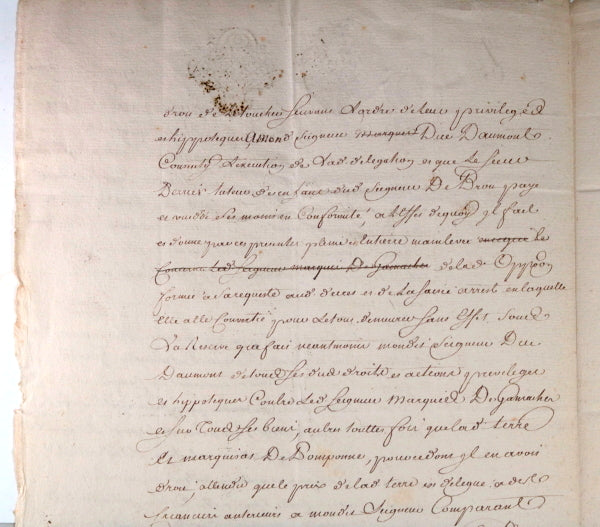 droit de Le toucher suivant Lordre de leur privileges
et hyppoteques, Mond Seigneur Marquis Duc Daumont
Consent Lexecution de Lad delegation et que Le Sieur
Tuteur des enfans dud Seigneur De Brou paye
et vuide ses mains en Conformité, a Leffet dequoy Il fait
et donne par ces presentes pleine et entiere mainlevée Le
Concerne Led Seigneur marquis De Gamaches de lad Oppon
formée a sa requeste aud decret et de La Saisie arrest en laquelle
elle a été Convertie pour Le tout demeurer sans Effet Sous
La Reserve que fait neantmoins mondit Seigneur Duc
Daumont de tous ses dud droits et actions privileges
et hyppoteques Contre Led Seigneur Marquis De Gamaches
et Sur Tous Ses biens, autres touttes fois que lad terre
Et marquisat De Pomponne, pouvu dont Il en avoir
droit, attendu que le prix de lad terre est delegué a des
Creanciers anterieurs a mondit Seigneur Comparant